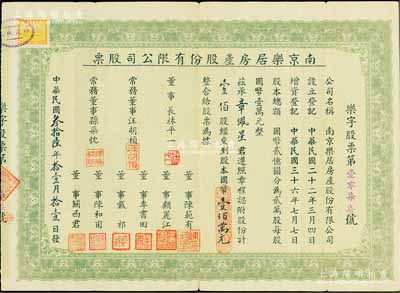 南京樂居房產股份有限公司股票
樂字股票第壹零柒號
公司名稱 南京樂居房產股份有限公司
設立登記 中華民國二十二年三月四日
增資登記 中華民國三十六年七月七日
股本總額 國幣貳億圓分為貳萬股每股
國幣壹萬元整
茲承章佩星君遵照章程認附股份計
壹佰股經交到股本國幣壹佰萬元
整合給股票為憑
董事長林平
常務董事汪胡楨
常務董事孫桑忱
董事陳範有
董事顏麗江
董事李書田
董事戴祁
董事陳和甫
董事關西君
中華民國叁拾陸年拾壹月拾壹日發
樂字股票第